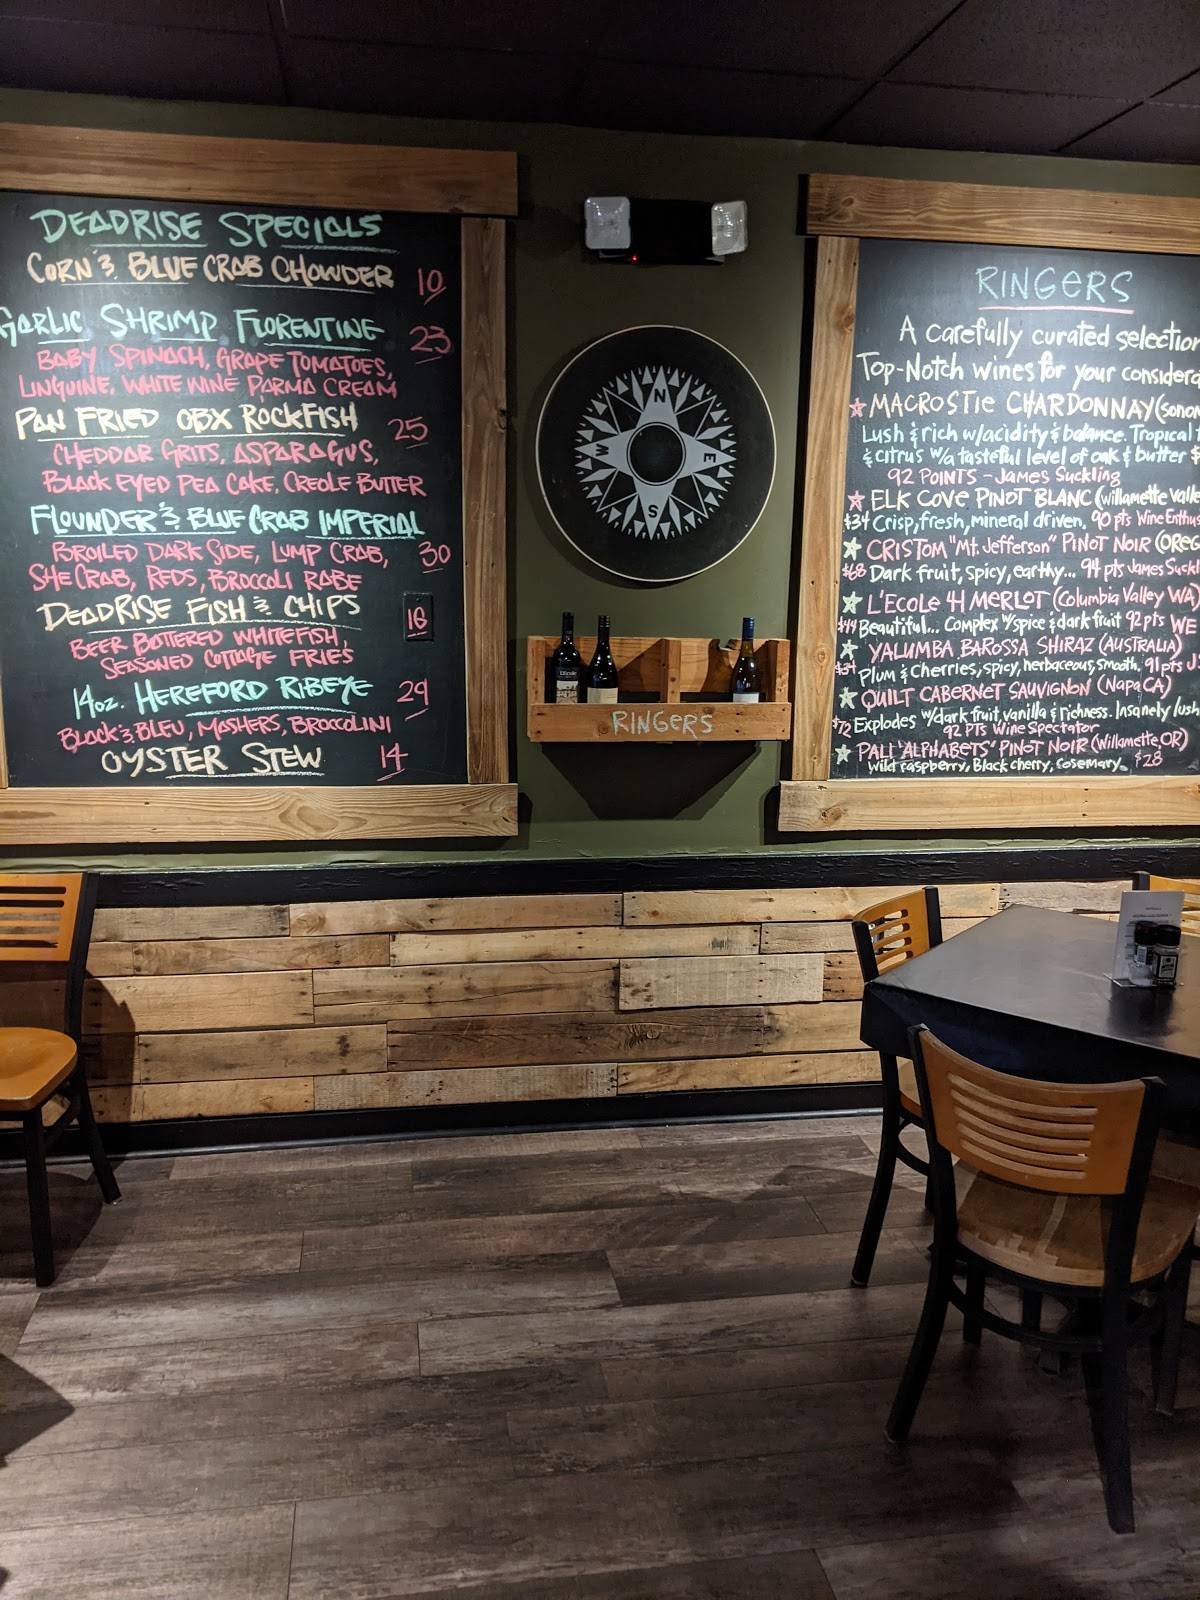 DEADRISE SPECIALS
CORN & BLUE CRAB CHOWDER 10
GARLIC SHRIMP FLORENTINE 23
BABY SPINACH, GRAPE TOMATOES,
LINGUINE, WHITE WINE PARMA CREAM
PAN FRIED OBX ROCKFISH 25
CHEDDAR GRITS, ASPARAGUS,
BLACK EYED PEA CAKE, CREOLE BUTTER
FLOUNDER & BLUE CRAB IMPERIAL
BROILED DARK SIDE, LUMP CRAB, 30
SHE CRAB, REDS, BROCCOLI RABE
DEADRISE FISH & CHIPS 18
BEER BATTERED WHITEFISH,
SEASONED COTTAGE FRIES
14oz. HEREFORD RIBEYE 29
BLACK & BLEU, MASHERS, BROCCOLINI
OYSTER STEW 14
N
E
S
W
RINGERS
RINGERS
A carefully curated selection
Top-Notch wines for your considera
MACROSTIE CHARDONNAY (Sono
Lush & rich w/acidity & balance. Tropical
& citrus w/a tasteful level of oak & butter $
92 POINTS - James Suckling
ELK COVE PINOT BLANC (Willamette Vall
$34 Crisp, fresh, mineral driven, 90 pts Wine Enthu
CRISTOM "Mt. Jefferson" PINOT NOIR (OREG
$68 Dark fruit, spicy, earthy... 94 pts James Suckl
L'ECOLE 41 MERLOT (Columbia Valley WA)
$49 Beautiful... Complex w/spice & dark fruit 92 pts WE
YALUMBA BAROSSA SHIRAZ (AUSTRALIA)
$34 Plum & Cherries, spicy, herbaceous, smooth, 91 pts J
QUILT CABERNET SAUVIGNON (Napa CA)
$72 Explodes w/dark fruit, vanilla & richness. Insanely lush
92 PTS Wine Spectator
PALI "ALPHABETS" PINOT NOIR (Willamette, OR)
Wild raspberry, Black cherry, rosemary $28